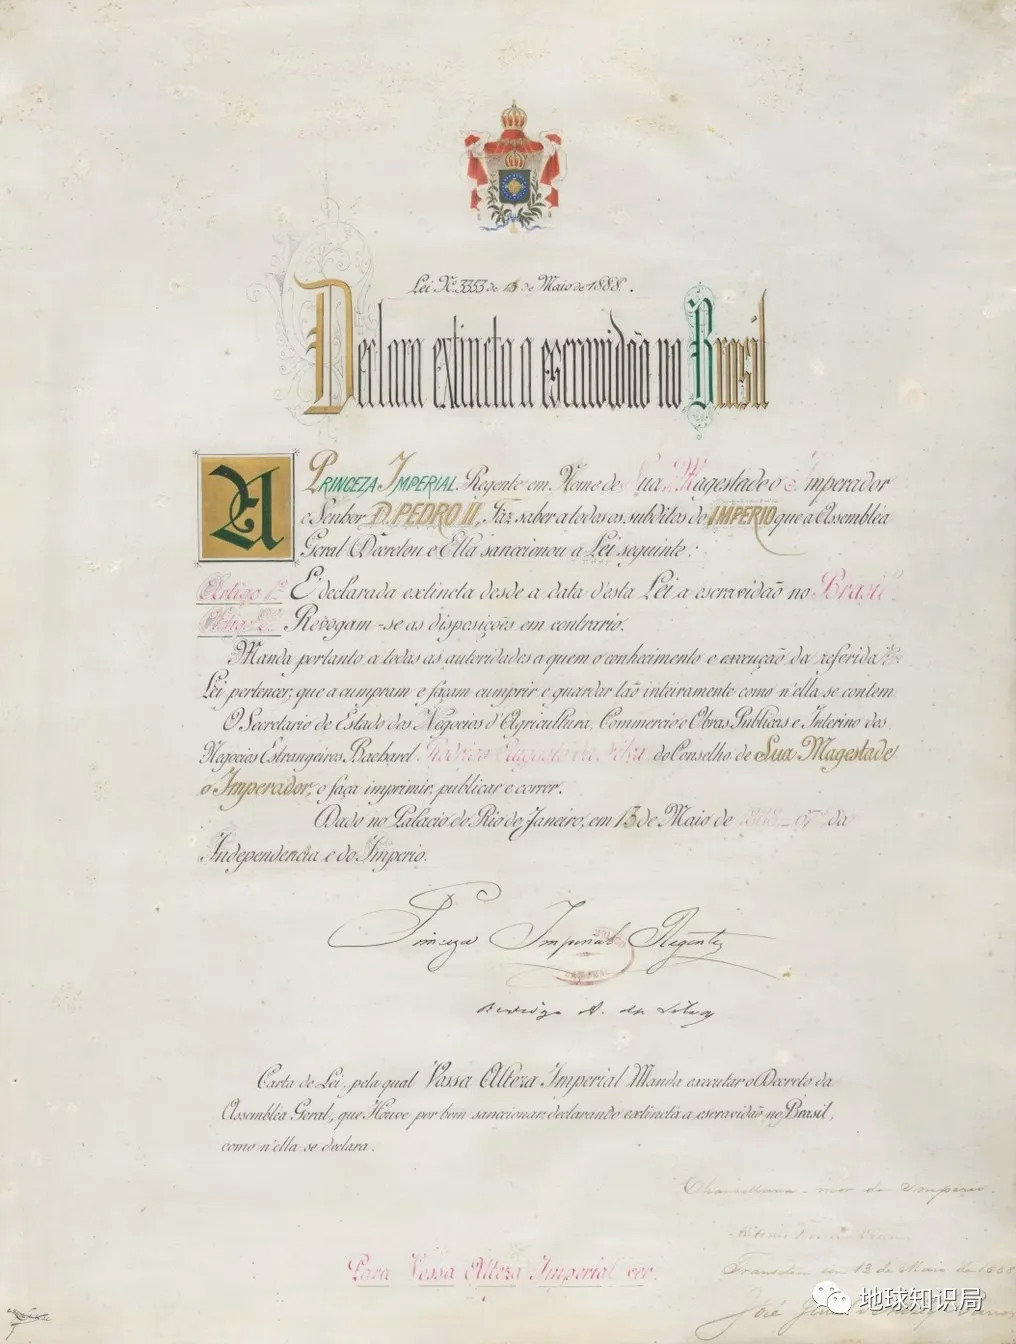 Lei Nº 3353 de 13 de Maio de 1888.
Declara extincta a escravidão no Brasil
A PRINCEZA IMPERIAL Regente em Nome de Sua Magestade o Imperador
o Senhor D. PEDRO II, Faz saber a todos os subditos do IMPERIO que a Assembléa
Geral Decretou e Ella sanccionou a Lei seguinte:
Artigo 1º É declarada extincta desde a data d'esta Lei a escravidão no Brasil.
Artigo 2º Revogam-se as disposições em contrario.
Manda portanto a todas as autoridades a quem o conhecimento e execução da referida
Lei pertencer, que a cumpram e façam cumprir e guardar tão inteiramente como n'ella se contem
O Secretario de Estado dos Negocios d'Agricultura, Commercio e Obras Publicas e Interino dos
Negocios Estrangeiros Bacharel Rodrigo Augusto da Silva do Conselho de Sua Magestade
o Imperador, o faça imprimir, publicar e correr.
Dado no Palacio do Rio de Janeiro, em 13 de Maio de 1888 - 67º da
Independencia e do Imperio.
Princeza Imperial Regente
Rodrigo A. da Silva
Carta de Lei, pela qual Vossa Alteza Imperial Manda executar o Decreto da
Assembléa Geral, que Houve por bem sanccionar declarando extincta a escravidão no Brasil,
como n'ella se declara.
Chancellaria-mor do Imperio.
Transitou em 13 de Maio de 1888
Para Vossa Alteza Imperial ver.
José
地球知识局